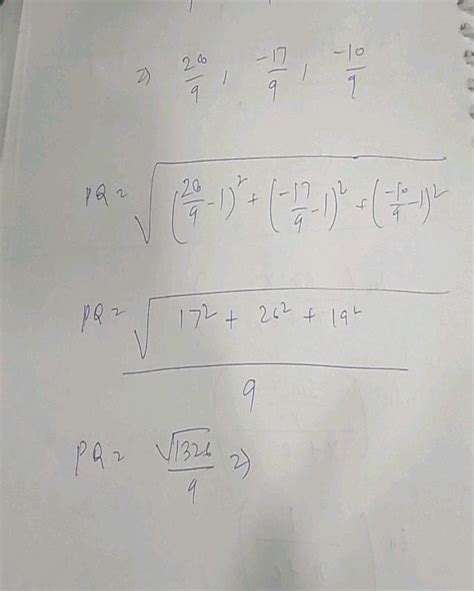 2) 26/9 , -17/9 , -10/9
PQ = √((26/9 - 1)² + (-17/9 - 1)² + (-10/9 - 1)²)
PQ = √(17² + 26² + 19²) / 9
PQ = √1326 / 9 2)